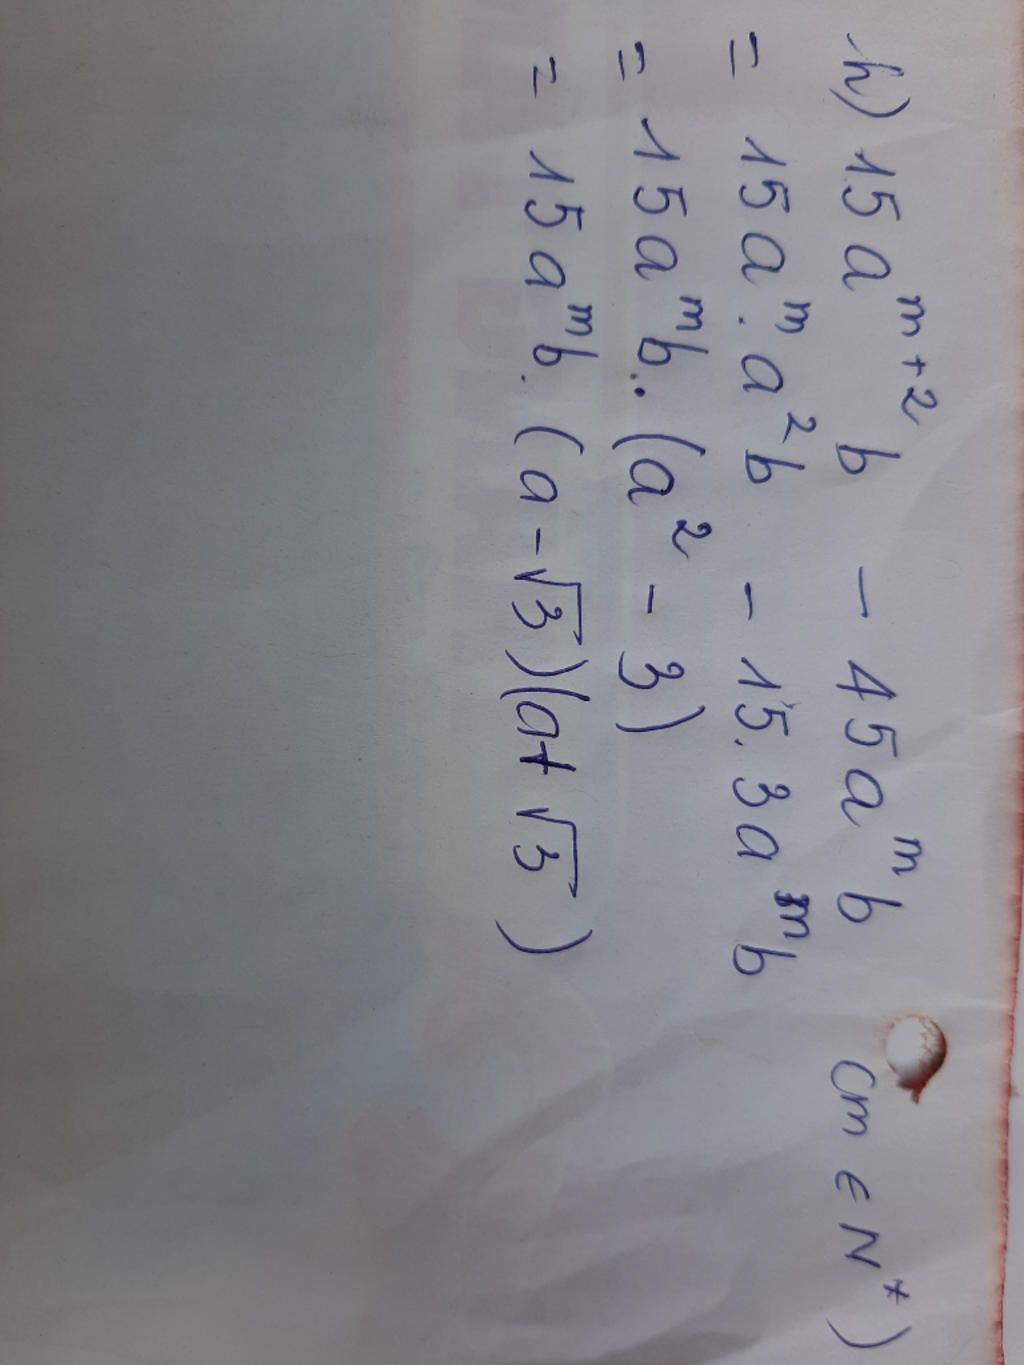 h) 15a^{m+2}b - 45a^m b (m ∈ N*)
= 15a^m . a^2 b - 15.3a^m b
= 15a^m b.. (a^2 - 3)
= 15a^m b. (a - √3)(a + √3)